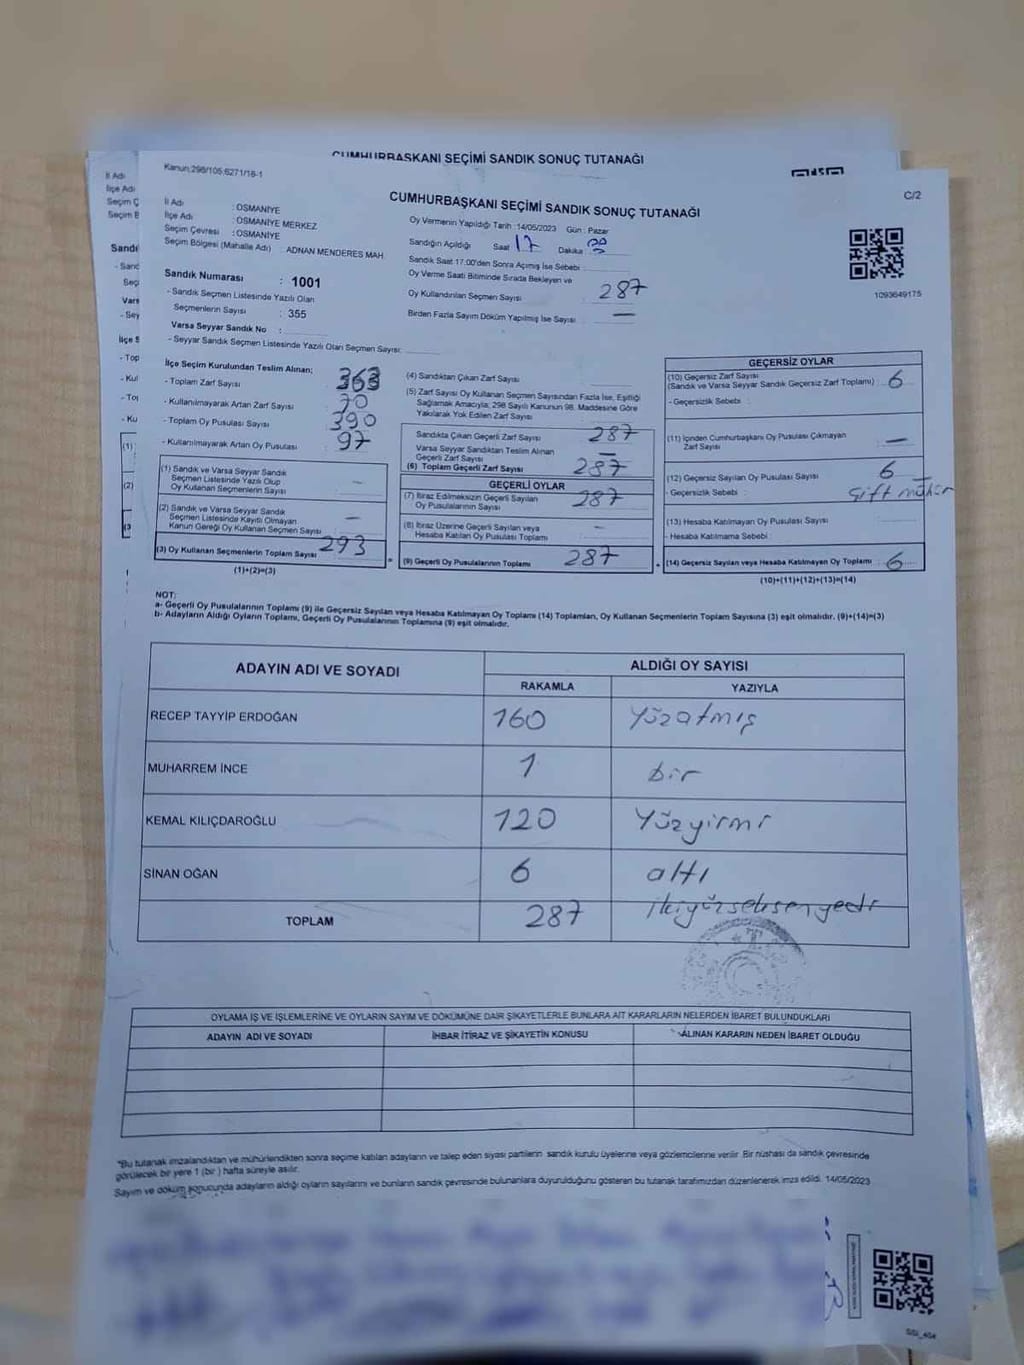 CUMHURBAŞKANI SEÇİMİ SANDIK SONUÇ TUTANAĞI
Kanun:298/105,6271/18-1
C/2
CUMHURBAŞKANI SEÇİMİ SANDIK SONUÇ TUTANAĞI
İl Adı : OSMANİYE
İlçe Adı : OSMANİYE MERKEZ
Seçim Çevresi : OSMANİYE
Seçim Bölgesi (Mahalle Adı) : ADNAN MENDERES MAH.
Sandık Numarası : 1001
- Sandık Seçmen Listesinde Yazılı Olan
Seçmenlerin Sayısı : 355
Varsa Seyyar Sandık No :
- Seyyar Sandık Seçmen Listesinde Yazılı Olan Seçmen Sayısı:
Oy Vermenin Yapıldığı Tarih :14/05/2023 Gün : Pazar
Sandığın Açıldığı Saat 17 Dakika
Sandık Saat 17:00'den Sonra Açımış İse Sebebi :
Oy Verme Saati Bitiminde Sırada Bekleyen ve
Oy Kullandırılan Seçmen Sayısı 287
Birden Fazla Sayım Döküm Yapılmış İse Sayısı : —
1093649175
İlçe Seçim Kurulundan Teslim Alınan;
- Toplam Zarf Sayısı : 363
- Kullanılmayarak Artan Zarf Sayısı : 70
- Toplam Oy Pusulası Sayısı : 390
- Kullanılmayarak Artan Oy Pusulası : 97
(1) Sandık ve Varsa Seyyar Sandık
Seçmen Listesinde Yazılı Olup
Oy Kullanan Seçmenlerin Sayısı : —
(2) Sandık ve Varsa Seyyar Sandık
Seçmen Listesinde Kayıtlı Olmayan
Kanun Gereği Oy Kullanan Seçmen Sayısı : —
(3) Oy Kullanan Seçmenlerin Toplam Sayısı : 293
(1)+(2)=(3)
(4) Sandıktan Çıkan Zarf Sayısı
(5) Zarf Sayısı Oy Kullanan Seçmen Sayısından Fazla İse, Eşitliği
Sağlamak Amacıyla; 298 Sayılı Kanunun 98. Maddesine Göre
Yakılarak Yok Edilen Zarf Sayısı
Sandıkta Çıkan Geçerli Zarf Sayısı 287
Varsa Seyyar Sandıktan Teslim Alınan
Geçerli Zarf Sayısı —
(6) Toplam Geçerli Zarf Sayısı 287
GEÇERLİ OYLAR
(7) İtiraz Edilmeksizin Geçerli Sayılan
Oy Pusulalarının Sayısı 287
(8) İtiraz Üzerine Geçerli Sayılan veya
Hesaba Katılan Oy Pusulası Toplamı —
(9) Geçerli Oy Pusulalarının Toplamı 287
GEÇERSİZ OYLAR
(10) Geçersiz Zarf Sayısı
(Sandık ve Varsa Seyyar Sandık Geçersiz Zarf Toplamı) : 6
- Geçersizlik Sebebi :
(11) İçinden Cumhurbaşkanı Oy Pusulası Çıkmayan
Zarf Sayısı : —
(12) Geçersiz Sayılan Oy Pusulası Sayısı : 6
- Geçersizlik Sebebi : Çift mühür
(13) Hesaba Katılmayan Oy Pusulası Sayısı :
- Hesaba Katılmama Sebebi :
(14) Geçersiz Sayılan veya Hesaba Katılmayan Oy Toplamı : 6
(10)+(11)+(12)+(13)=(14)
NOT:
a- Geçerli Oy Pusulalarının Toplamı (9) ile Geçersiz Sayılan veya Hesaba Katılmayan Oy Toplamı (14) Toplamları, Oy Kullanan Seçmenlerin Toplam Sayısına (3) eşit olmalıdır. (9)+(14)=(3)
b- Adayların Aldığı Oyların Toplamı, Geçerli Oy Pusulalarının Toplamına (9) eşit olmalıdır.
ADAYIN ADI VE SOYADI ALDIĞI OY SAYISI
RAKAMLA YAZIYLA
RECEP TAYYİP ERDOĞAN 160 Yüzatmış
MUHARREM İNCE 1 bir
KEMAL KILIÇDAROĞLU 120 Yüzyirmi
SİNAN OĞAN 6 altı
TOPLAM 287 ikiyüzseksenyedi
OYLAMA İŞ VE İŞLEMLERİNE VE OYLARIN SAYIM VE DÖKÜMÜNE DAİR ŞİKAYETLERLE BUNLARA AİT KARARLARIN NELERDEN İBARET BULUNDUKLARI
ADAYIN ADI VE SOYADI İHBAR İTİRAZ VE ŞİKAYETİN KONUSU ALINAN KARARIN NEDEN İBARET OLDUĞU
*Bu tutanak imzalandıktan ve mühürlendikten sonra seçime katılan adayların ve talep eden siyasi partilerin sandık kurulu üyelerine veya gözlemcilerine verilir. Bir nüshası da sandık çevresinde
görülecek bir yere 1 (bir) hafta süreyle asılır.
Sayım ve döküm sonucunda adayların aldığı oyların sayılarını ve bunların sandık çevresinde bulunanlara duyurulduğunu gösteren bu tutanak tarafımızdan düzenlenerek imza edildi. 14/05/2023